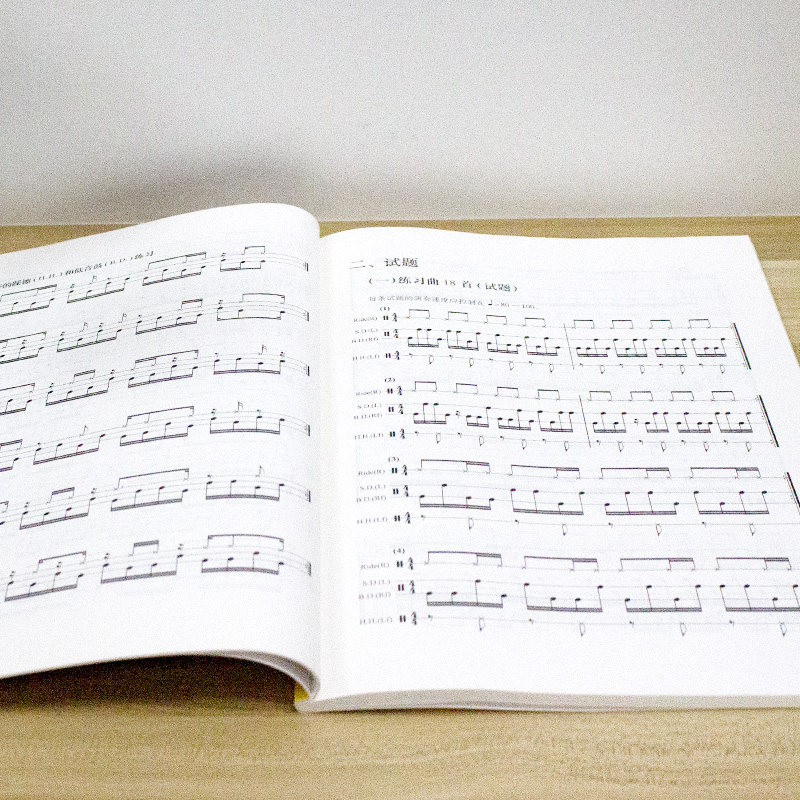 的踩镲(H.H.)和低音鼓(B.D.)练习
二、试题
(一)练习曲 18 首(试题)
每条试题的演奏速度应控制在 ♩=80—100
(1)
Ride(R)
S.D.(L)
B.D.(Rf)
H.H.(Lf)
(2)
Ride(R)
S.D.(L)
B.D.(Rf)
H.H.(Lf)
(3)
Ride(R)
S.D.(L)
B.D.(Rf)
H.H.(Lf)
(4)
Ride(R)
S.D.(L)
B.D.(Rf)
H.H.(Lf)